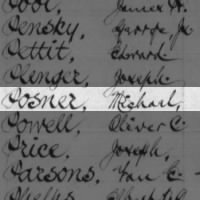 Pool, James H.
Pensky, George Jr
Pettit, Edward
Plenger, Joseph
Posner, Michael,
Powell, Oliver C
Price, Joseph,
Parsons, Van E
Phelps,